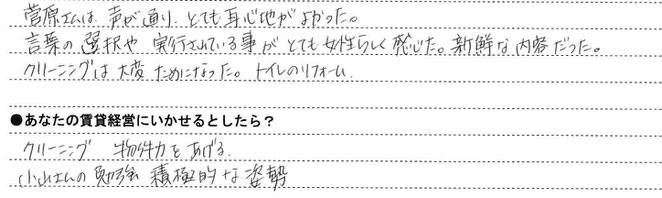 菅原さんは 声が通り、とても耳心地がよかった。
言葉の選択や 実行されている事が とても女性らしく感じた。新鮮な内容だった。
クリーニングは大変 ためになった。トイレのリフォーム
●あなたの賃貸経営にいかせるとしたら？
クリーニング 物件力をあげる。
小山さんの勉強 積極的な姿勢